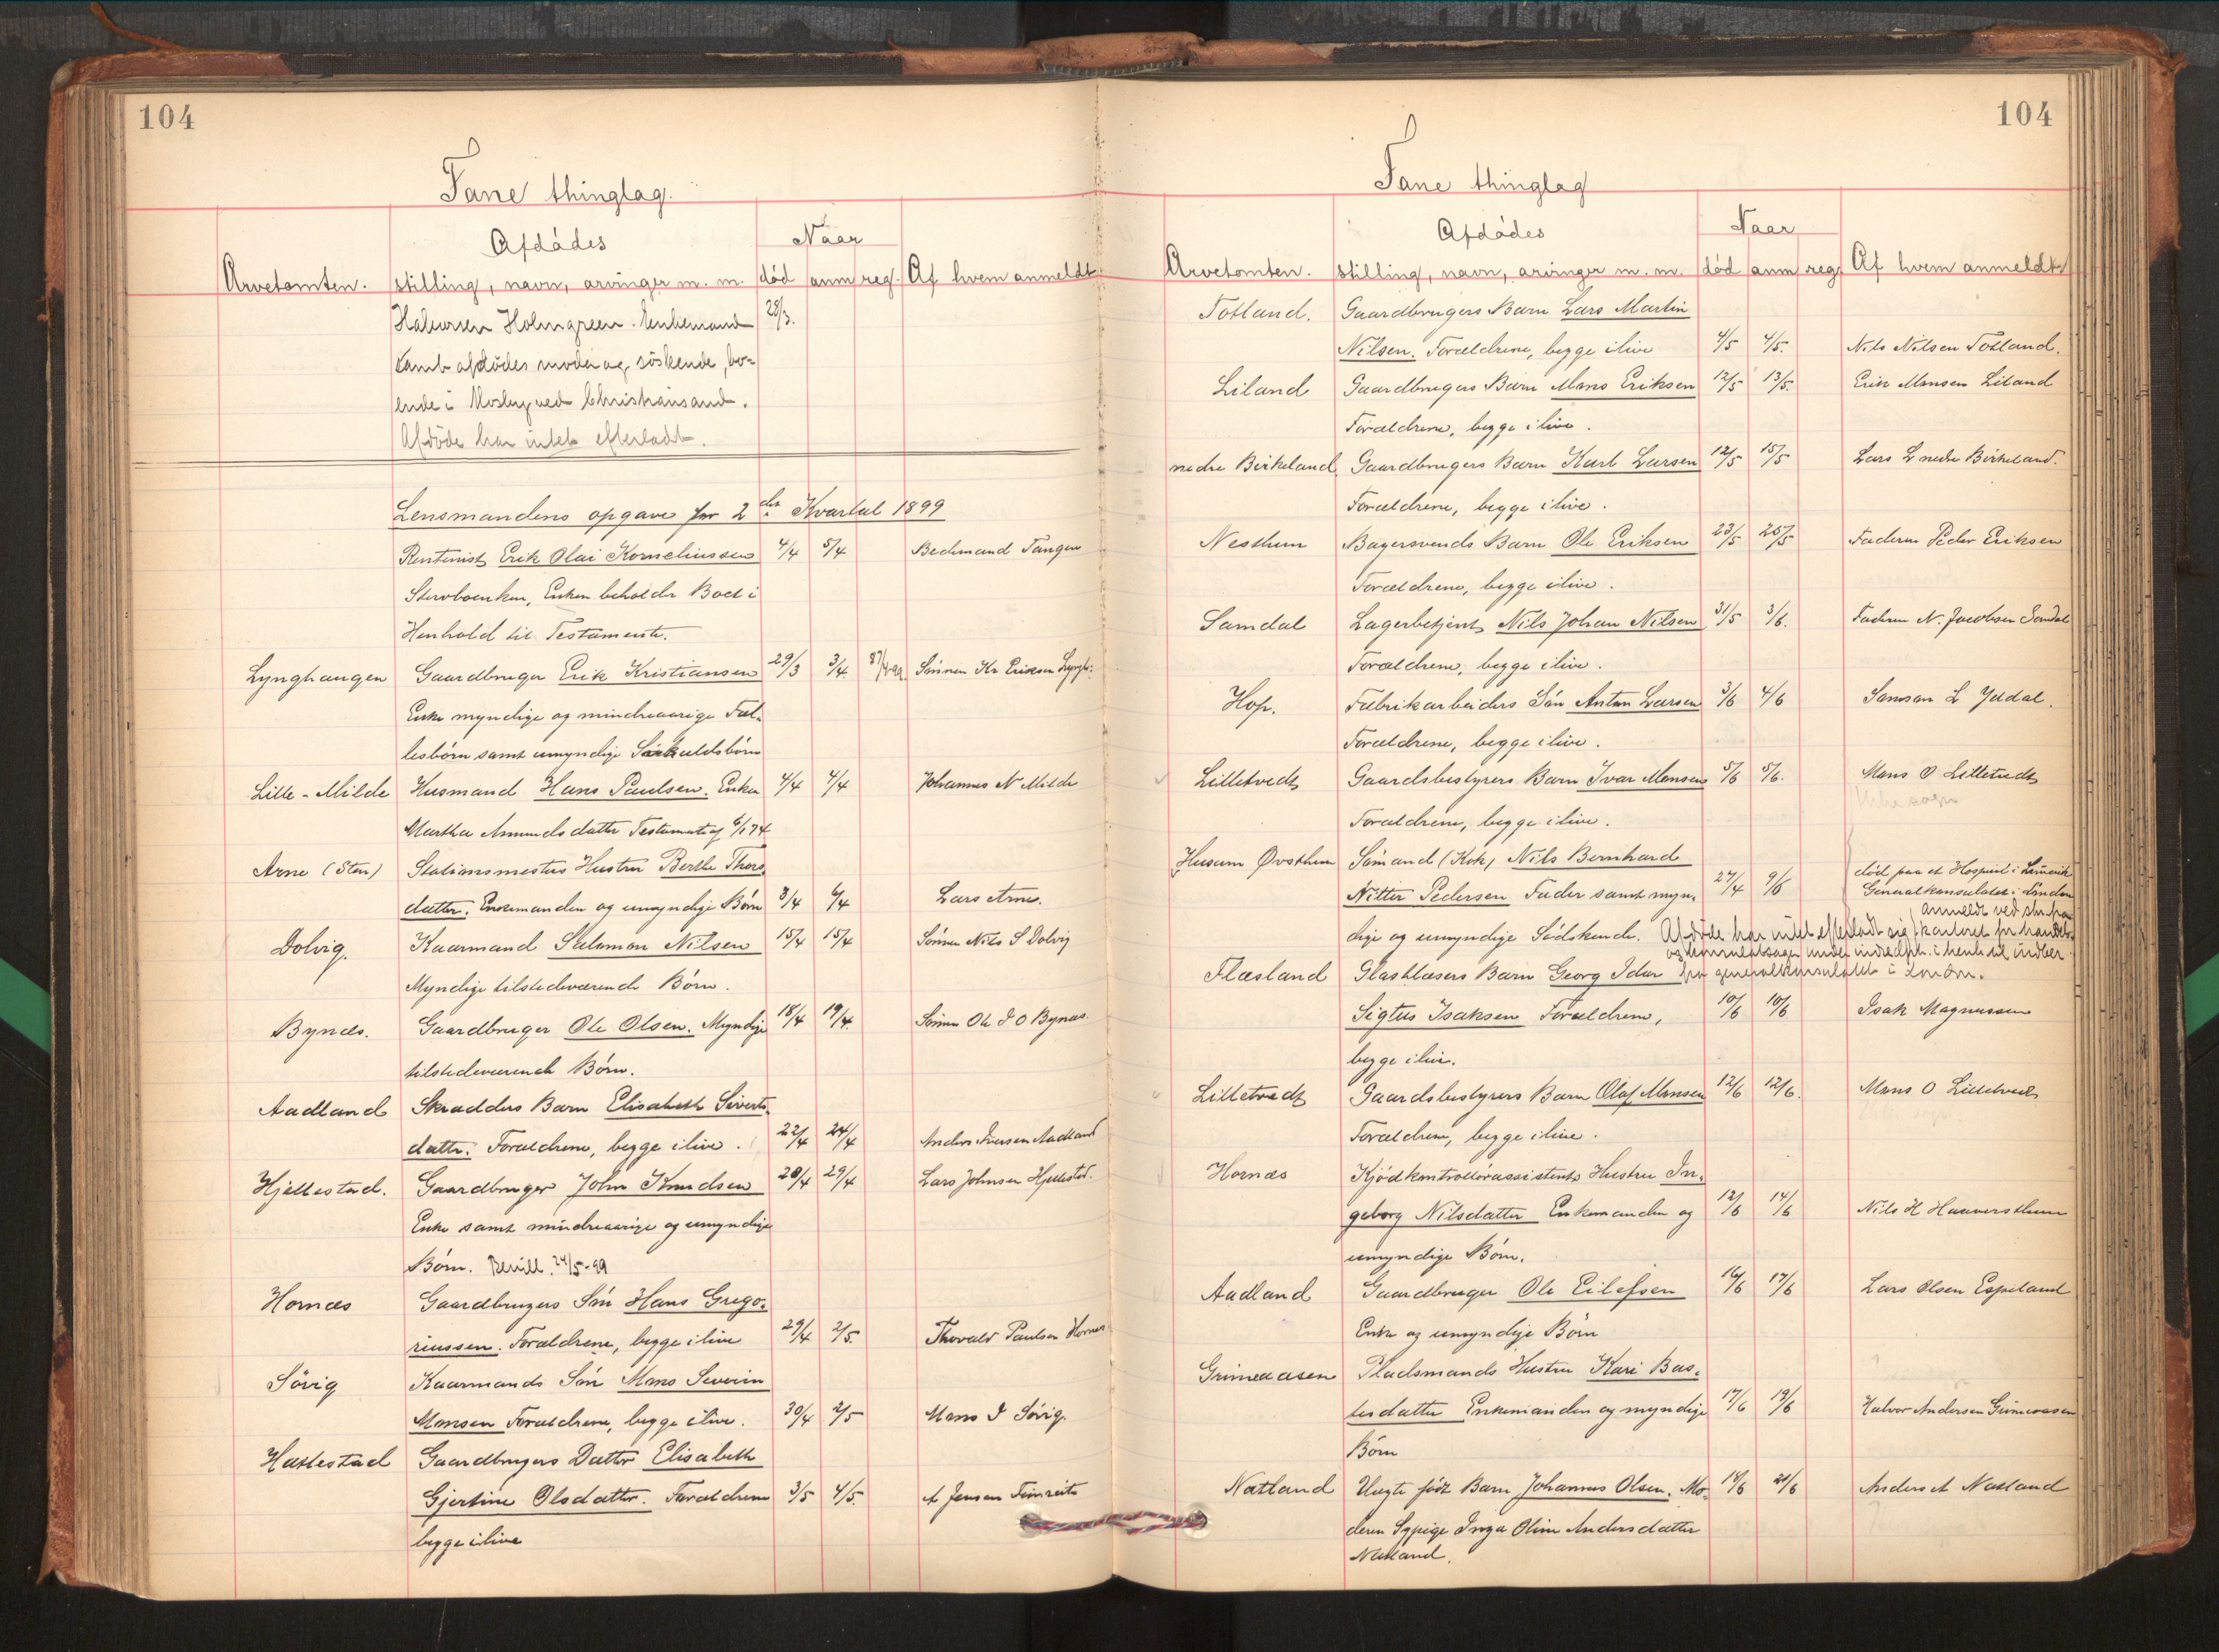 104
Fane thinglag.
Afdødes
Naar
Arvetomten.
stilling, navn, arvinger m. m.
død
anm
reg.
Af hvem anmeldt
Halvorsen Holmgreen. Enkemand 28/3.
samt afdødes moder og söskende, bo-
ende i Mosby ved Christiansand.
Afdöde har intet efterladt.
Lensmandens opgave for 2det Kvartal 1899
Rentenist Erik Olai Korneliussen 4/4 5/4 Bechmand Tangen
Stervboenken, Enken beholder Boet i
Henhold til Testamente.
Lynghaugen Gaardbruger Erik Kristiansen 29/3 3/4 Sønnen Kr Eriksen
Enke myndige og mindreaarige Fæl-
lesbörn samt umyndige Særkuldsbörn
Lille-Milde Husmand Hans Paulsen. Enken 4/4 4/4 Johannes N Milde
Martha Amundsdatter Testament af
Arne (Stan) Stationsmesters Hustru Berthe Thors-
datter. Enkemanden og umyndige Börn 3/4 6/4 Lars Arne.
Dolvig. Kaarmand Salomon Nilsen 15/4 15/4 Sønnen Nils S Dolvig
Myndige tilstedeværende Börn.
Bynæs. Gaardbruger Ole Olsen. Myndige 18/4 19/4 Sønnen Ole J O Bynæs.
tilstedeværende Börn.
Aadland Skrædders Barn Elisabeth Siverts-
datter. Forældrene, begge ilive. 22/4 24/4 Anders Iversen Aadland
Hjellestad. Gaardbruger John Knudsen 28/4 29/4 Lars Johnsen Hjellestad.
Enke samt mindreaarige og umyndige
Börn. Bevill. 24/5-99
Hornæs Gaardbrugers Sön Hans Grego-
riussen. Forældrene, begge ilive 29/4 2/5 Thorvald Paulsen Hornæs
Sövig Kaarmands Sön Mons Severin
Monsen Forældrene, begge ilive. 30/4 2/5 Mons J Sövig.
Hattestad Gaardbrugers Datter Elisabeth
Gjertine Olsdatter. Forældrene 3/5 4/5. A Jensen Titnreite
begge ilive
104
Fane thinglag
Afdødes
Naar
Arvetomten.
stilling, navn, arvinger m. m.
død
anm
reg.
Af hvem anmeldt
Totland. Gaardbrugers Barn Lars Martin
Nilsen. Forældrene, begge ilive 4/5 4/5. Nils Nilsen Totland.
Liland Gaardbrugers Barn Mons Eriksen 12/5 13/5. Erik Monsen Liland
Forældrene, begge ilive.
nedre Birkeland Gaardbrugers Barn Karl Larsen 12/5 15/5 Lars L nedre Birkeland.
Forældrene, begge ilive.
Nesthun Bagersvends Barn Ole Eriksen 23/5 25/5 Faderen Peder Eriksen
Forældrene, begge ilive.
Samdal Lagerbetjent Nils Johan Nilsen 31/5 3/6. Faderen N. Jacobsen Samdal
Forældrene, begge ilive.
Hop. Fabrikarbeiders Sön Anton Larsen 3/6 4/6 Samson L Yddal.
Forældrene, begge ilive.
Lilletvedt Gaardsbestyrers Barn Ivar Monsen 5/6 5/6. Mons O Lilletvedt
Forældrene, begge ilive.
Husum Øvsthun Sömand (Kok) Nils Bernhard
Nitter Pedersen Fader samt myn- 27/4 9/6 død paa et Hospital i Limerick
Generalkonsulatet i London
dige og umyndige Södskende. Afdöde har intet efterladt sig anmeldt ved skr. fra kontoret for handels-
og konsulatsager under indredepth. i henh. til indber.
fra generalkonsulatet i London.
Flæsland Glasblæsers Barn Georg Idar
Sigtus Isaksen Forældrene, 10/6 10/6 Isak Magnussen
begge ilive.
Lilletvedt Gaardsbestyrers Barn Olaf Monsen 12/6 12/6. Mons O Lilletvedt
Forældrene, begge ilive.
Hornæs Kjödkontrollörassistents Hustru In-
geborg Nilsdatter Enkemanden og 12/6 14/6 Nils H Haaversthun
umyndige Börn.
Aadland Gaardbruger Ole Eilefsen 16/6 17/6 Lars Olsen Espeland
Enke og umyndige Börn
Grimeaasen Pladsmands Hustru Kari Bas-
tesdatter Enkemanden og myndige 17/6 19/6 Halvor Andersen Grimeaasen
Börn
Natland Uægte födt Barn Johannes Olsen. Mo- 18/6 21/6 Anders A Natland
deren Sypige Inga Oline Andersdatter
Natland.